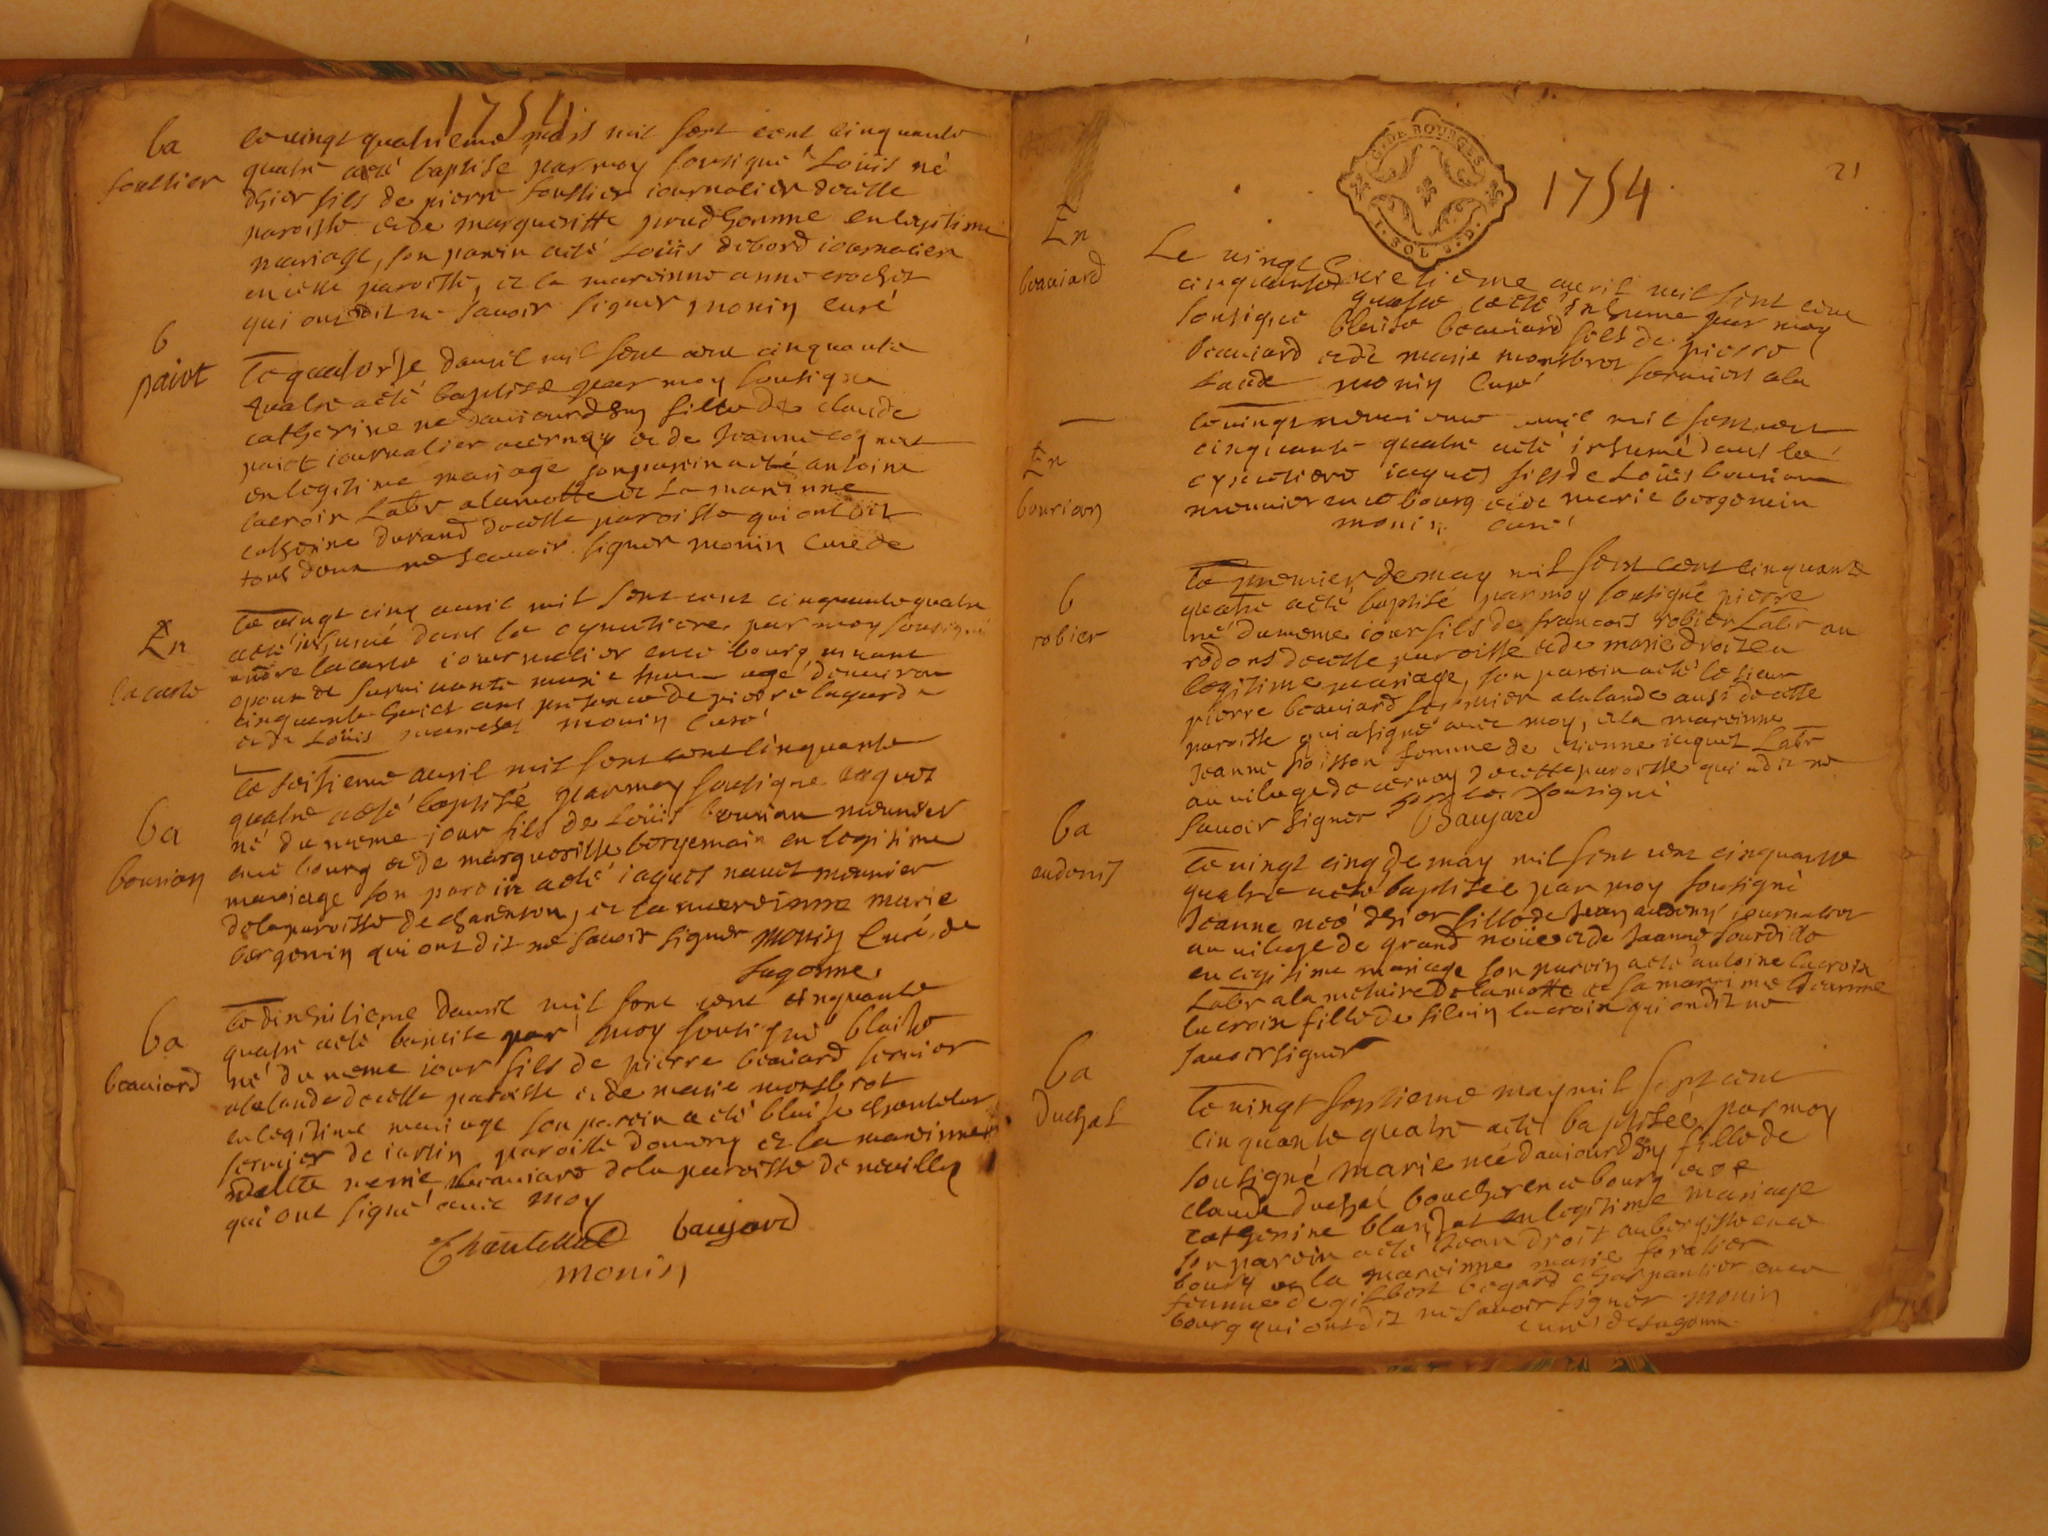 1754
ba
soultier
le vingt quatrieme mars mil sept cent cinquante
quatre a été baptisé par moy sousigné Loüis né
dhier fils de pierre soultier iournalier de cette
paroisse et de margueritte prudhomme en legitime
mariage, son parein a été Loüis debord iournalier
en cette paroisse, et la mareinne anne crochet
qui ont dit ne savoir signer monin curé
b
paiot
Le quatorse davril mil sept cent cinquante
quatre a été baptisée par moy sousigné
catherine née daujourdhuy fille de claude
paiot iournalier a cernay et de Jeanne cognet
en legitime mariage son parein a été antoine
lacroix Labr a lamotte et La mareinne
catherine durand de cette paroisse qui ont dit
tous deux ne scauoir signer monin curé de
En
lacaste
Le vingt cinq auril mil sept cent cinquante quatre
a été inhumé dans le cymetiere par moy sousigné
andre lacaste iournalier en ce bourg
epoux de suruiuante marie agé denuiron
cinquante huict ans presence de pierre laguarde
et de Loüis monin curé
ba
bourian
Le seisieme auril mil sept cent cinquante
quatre a été baptisé par moy sousigné iaques
né du meme jour fils de Loüis bourian meunier
en ce bourg et de margueritte bergemain en legitime
mariage son parein a été iaques naudet meunier
de la paroisse de charenton, et la mareinne marie
bergemin qui ont dit ne sauoir signer monin Curé de
sagonne
ba
beauiard
Le dixhuitieme dauril mil sept cent cinquante
quatre a été baptisé par moy sousigné blaise
né du meme iour fils de pierre beauiard fermier
a la lande de cette paroisse et de marie monsbrot
en legitime mariage son parein a été blaise chantelat
fermier de iartin paroisse doüroy et la mareinne
beauiard de la paroisse de neuilly
qui ont signé auec moy
Chantellat baujard
monin
21
G. DE BOURGES
1754
En
beauiard
Le vingt huictieme auril mil sept cent
cinquante quatre a été inhumé par moy
sousigné blaise beauiard fils de pierre
beauiard et de marie monsbrot fermier a la
Lande monin Curé
En
bourian
le vingt neuuieme auril mil sept cent
cinquante quatre a été inhumé dans le
cymetiere iaques fils de Loüis bourian
meunier en ce bourg et de marie bergemin
monin curé
b
robier
Le premier de may mil sept cent cinquante
quatre a été baptisé par moy sousigné pierre
né du meme iour fils de francois robier Labr au
rodons de cette paroisse et de marie droit en
legitime mariage, son parein a été le sieur
pierre beauiard fermier a la lande aussi de cette
paroisse qui a signé auec moy, et la mareinne
Jeanne poisson femme de etienne iaquet Labr
au vilage de cernay de cette paroisse qui a dit ne
sauoir signer sousigné
Baujard
ba
audoins
Le vingt cinq de may mil sept cent cinquante
quatre a été baptisée par moy sousigné
Jeanne née dhier fille de Jean iournalier
au vilage de grand noüe et de Jeanne sourdille
en legitime mariage son parein a été antoine lacroix
Labr a la metairie de lamotte et la mareinne
lacroix fille de siluin lacroix qui ont dit ne
sauoir signer
ba
Duchat
Le vingt septieme may mil sept cent
cinquante quatre a été baptisée par moy
sousigné marie née daujourdhuy fille de
claude duchat boucher en ce bourg et de
catherine blanzat en legitime mariage
son parein a été Jean droit aubergiste en ce
bourg et la mareinne marie
femme de gilbert begard charpantier en ce
bourg qui ont dit ne sauoir signer monin
curé de sagonne